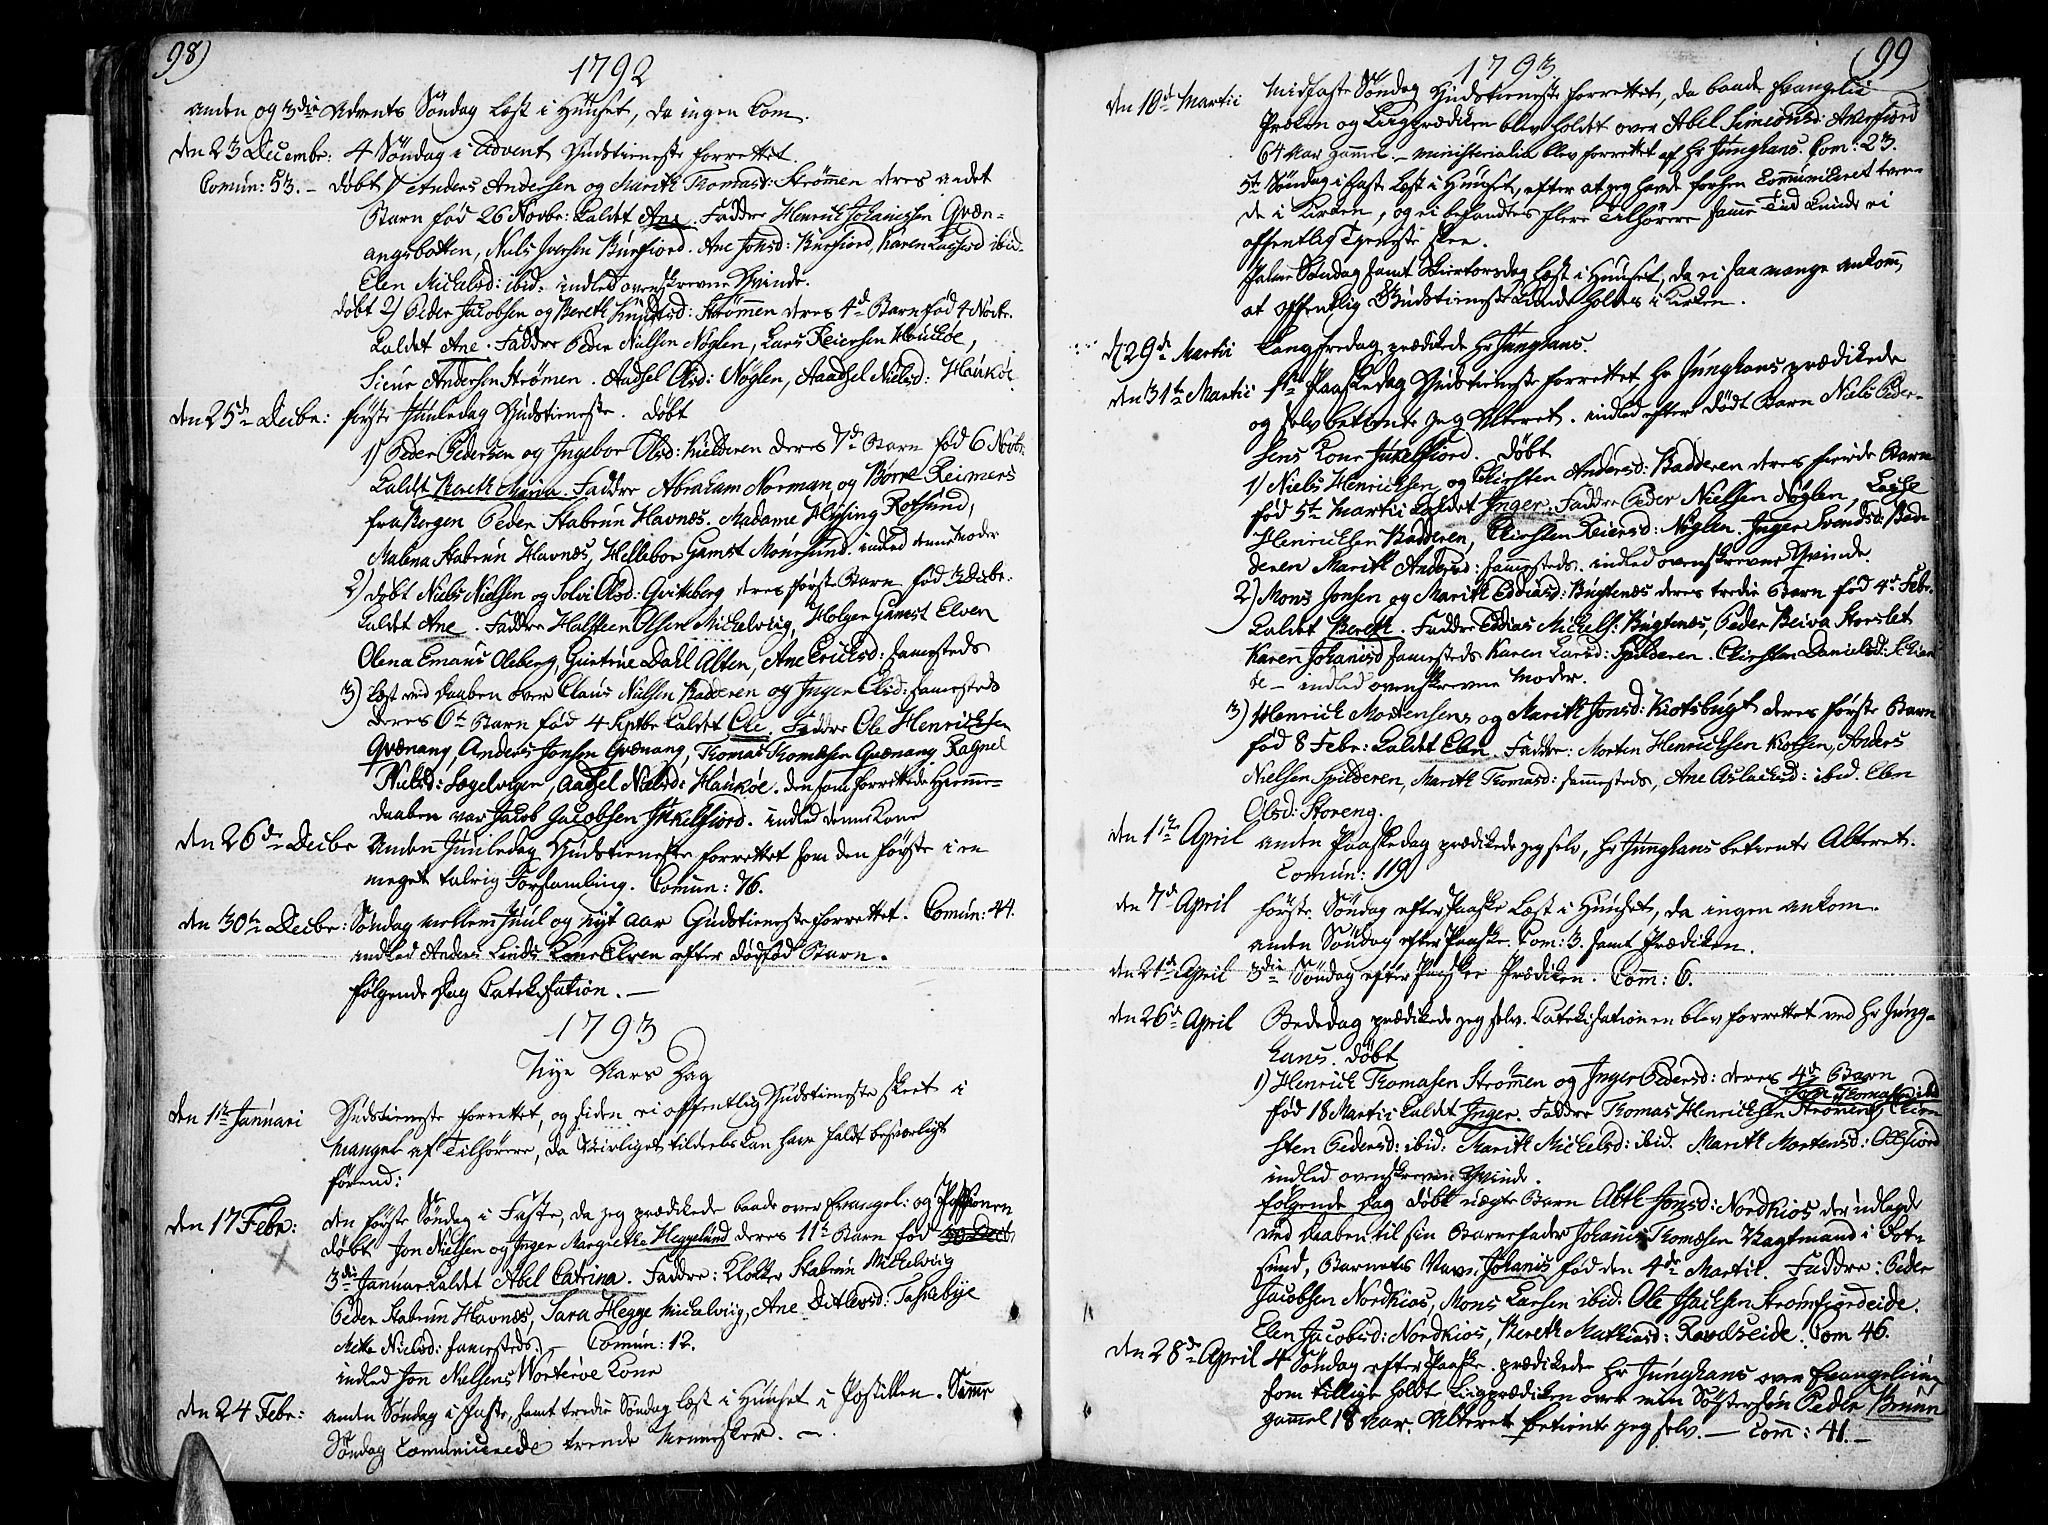 98)
1792
anden og 3die Advents Søndag læst i Huuset, da ingen kom.
den 23 Decembr: 4 Søndag i Advent Gudstieneste forrettet.
Comun: 53. – døbt 1 Anders Andersen og Marith Thomasd: Strømmen deres andet
Barn fød 26 Novbr: kaldet Ane. Faddre Henrich Johannsen Qvæn-
angsbotten, Niels Iversen Burfiord. Ane Jonsd: Burfiord, Karen ibid.
Elen Michelsd: ibid. indled ovenskrevne Qvinde.
døbt 2) Peder Jacobsen og Bereth Knudsd: Strømmen deres 4d Barn fød 4 Novbr.
kaldet Ane. Faddre Peder Nielsen Nøglen, Lars Reiersen Haukøe,
Siver Andersen Strømen. Aadsel Olsd: Nøglen, Aadsel Nielsd: Haukøe
den 25de Decbr: første Juuledag Gudstieneste. døbt
1) Peder Pedersen og Ingebor Olsd: Kielderen deres 7de Barn fød 6 Novbr:
kaldet Maria. Faddre Abraham Norman og Børre Reimers
fra Bergen Peder Stabrun Havnæs. Madame Hysing Rotsund,
Malena Stabrun Havnæs, Hellebor Gamst Moursund. indled denne Moder
2) døbt Niels Nielsen og Solvi Olsd: Qvitteberg deres første Barn fød 3 Decbr:
kaldet Ane. Faddre Halsteen Olsen Michelvig, Holger Gamst Elven
Olena Emaus Oleberg, Giertrue Dahl Alten, Ane Ericksd: sammesteds
3) læst ved daaben over Claus Nielsen Badderen og Inger Olsd: sammesteds
deres 6te Barn fød 4 Septbr kaldet Ole. Faddre Ole Henrichsen
Qvænang, Anders Jonsen Qvænang, Thomas Thomæsen Qvænang. Ragnel
Nielsd: Segelvigen, Aadsel Nielsd: Haukøe. den som forrettede Hiemme-
daaben var Jacob Jacobsen Jøkelfiord. indled denne Kone
den 26de Decbr Anden Juuledag Gudstieneste forrettet som den første i en
meget talrig Forsamling. Comun: 76.
den 30te Decbr: Søndag mellem Juul og Nyt Aar Gudstieneste forrettet. Comun: 44.
indled Anders Linds Kone Elven efter dødfød Barn.
følgende dag Catekisation. —
1793
Nye Aars Dag
den 1te Januari Gudstieneste forrettet, og siden ei offentlig Gudstieneste skeet i
mangel af Tilhørere, da Veirliget tildeels kan have faldt besværligt
førend:
den 17 Febr: den første Søndag i Faste, da jeg prædikede baade over Evangel: og Passionen
døbt Jon Nielsen og Inger Margrethe Heggelund deres 11te Barn fød
3die Januar kaldet Abel Catrina. Faddre: Klokker Stabrun Michelvig
Peder Stabrun Havnæs, Sara Hegge Michelvig, Ane Ditlevsd: Taskebye
Mette Nielsd: sammesteds. – Comun: 12.
indled Jon Nielsens Vorterøe Kone
den 24 Febr: anden Søndag i Faste, samt tredie Søndag læst i Huuset i Postillen. Samme
Søndag communicerede trende Mennesker. —
1793
(99
den 10de Martii Midfaste Søndag Gudstieneste forrettet, da baade Evangelii
Præken og Liigprædiken blev holdet over Abel Simeonsd: Alterfiord
64 Aar gammel. – Ministerialia blev forrettet af Hr Junghans. Com: 23.
5te Søndag i Faste læst i Huuset, efter at jeg havde forhen Communiceret tven-
de i Kirken, og ei befandtes flere Tilhørere samme Tid kunde ei
offentlig Tieneste skee.
Palme Søndag samt Skiertorsdag læst i Huuset, da ei saa mange ankom,
at offentlig Gudstieneste kunde holdes i Kirken.
d. 29de Martii Langfredag prædikede Hr Junghans.
den 31te Martii 1ste Paaskedag Gudstieneste forrettet, Hr Junghans prædikede
og selv betiente jeg Alteret. indled efter dødt Barn Niels Peder-
sens Kone Jøkelfiord. døbt
1) Niels Henrichsen og Chirsten Andersd: Badderen deres fierde Barn
fød 5te Martii kaldet Inger. Faddre Peder Nielsen Nøglen, Lasse
Henrichsen Badderen, Chirsten Reiersd: Nøglen. Inger Svendsd: Bad-
deren Marith Andersd: sammesteds. indled ovenskrevne Qvinde.
2) Mons Jonsen og Marith Eddiasd: Bugtenæs deres tredie Barn fød 4de Febr.
kaldet Bereth. Faddre Eddias Michels: Bugtenæs, Peder Beiva Storslet
Karen Johanisd sammesteds Karen Larsd: Spilderen. Chirsten Danielsd:
– indled ovenskrevne Moder.
3) Henrich Mortensen og Marith Jonsd: Kiotsbugt deres første Barn
fød 8 Febr: kaldet Elen. Faddre: Morten Henrichsen Kotsen, Anders
Nielsen Spilderen, Marith Thomasd: sammesteds, Ane Aslachsd: ibid. Elen
Olsd: Storeng.
den 1te April anden Paaskedag prædikede jeg selv, Hr Junghans betiente Alteret.
Comun: 119
den 7de April første Søndag efter Paaske læst i Huuset, da ingen ankom.
anden Søndag efter Paaske. Com: 3. samt Prædiken.
den 21de April 3die Søndag efter Paaske Prædiken. Comm: 6.
den 26de April Bededag prædikede jeg selv. Catekisationen blev forrettet ved Hr Jung-
hans. døbt
1) Henrich Thomasen Strømmen og Inger Pedersd: deres 4de Barn
fød 18 Martii kaldet Inger. Faddre Thomas Henrichsen Strømen, Thomasen ibd Chir-
sten Pedersd: ibid: Marith Michelsd: ibid. Marith Mortensd: Oxfiord
indled ovenskrevne Qvinde.
følgende Dag døbt uægte Barn Abel Jonsd: Nordkios der udlagde
ved daaben til sin Barnefader Johanis Thomæsen Bagtmand i Rot-
sund, Barnets Navn Johanis fød den 4de Martii. Faddre: Peder
Jacobsen Nordkios, Mons Larsen ibid. Ole Isachsen Strømfiordeide.
Elen Jacobsd: Nordkios, Bereth Mathiasd: Ravelseide. Com 46.
den 28de April 4 Søndag efter Paaske prædikede Hr Junghans over Evangelium
som tillige holdte Liigprædiken over min Søstersøn Peder Bruun
gammel 18 Aar. Alteret betiente jeg selv. — Com: 41. –